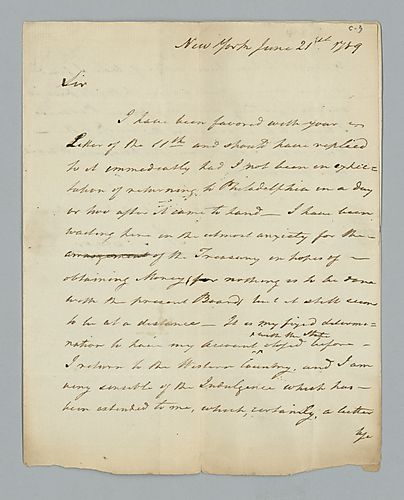 c-3
New York June 21st 1789
Sir
I have been favored with your
Letter of the 11th and should have replied
to it immediately had I not been in expec=
tation of returning to Philadelphia in a day
or two after it came to hand — I have been
waiting here in the utmost anxiety for the
arrangement of the Treasury in hopes of —
obtaining Money, for nothing is to be done
with the present Board, but it still seems
to be at a distance — It is my fixed determi=
with the State
nation to have my Account closed before —
I return to the Western Country, and I am
very sensible of the Indulgence which has —
been extended to me, which, certainly, a better
use